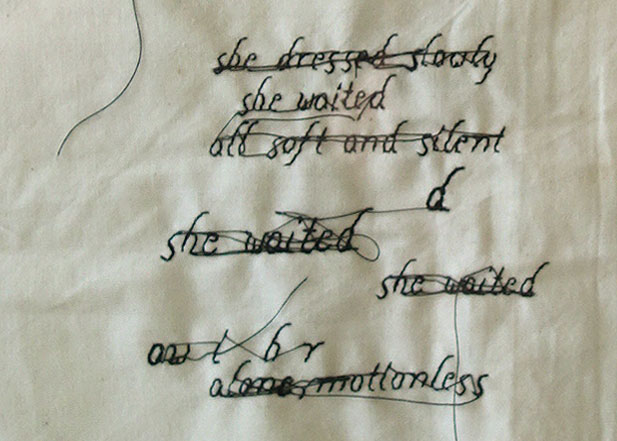 she dressed slowly
she waited
all soft and silent
d
she waited
she waited
alone, motionless